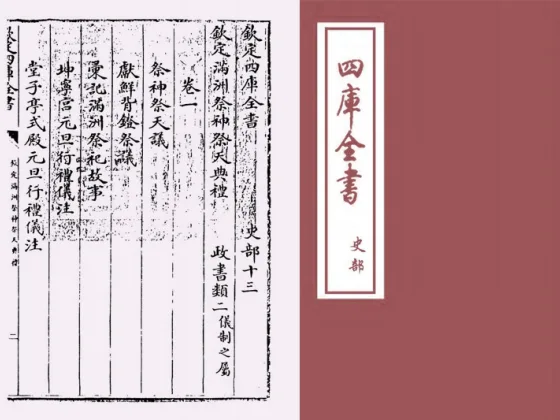 欽定四庫全書 史部十三
欽定滿洲祭神祭天典禮 政書類二儀制之屬
卷一
祭神祭天議
獻鮮背鐙祭議
彚記滿洲祭祀故事
坤寧宮元旦行禮儀注
堂子亭式殿元旦行禮儀注
欽定四庫全書
欽定滿洲祭神祭天典禮
二
四庫全書
史部